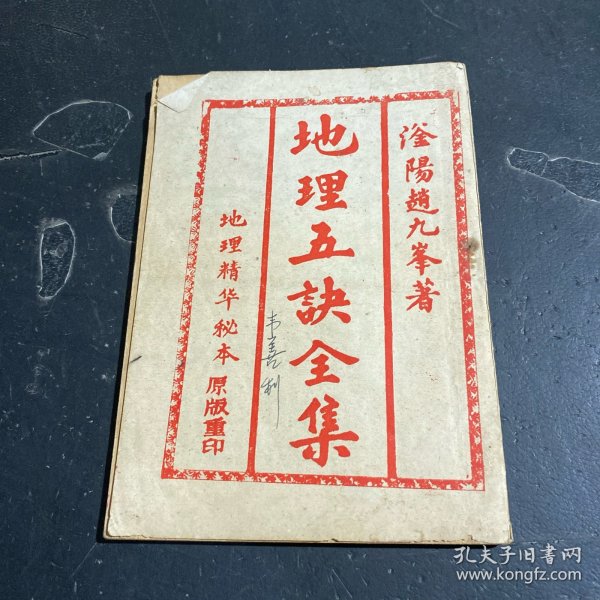 滏陽趙九峯著
地理五訣全集
韦善利
地理精华秘本 原版重印
孔夫子旧书网
www.kongfz.com